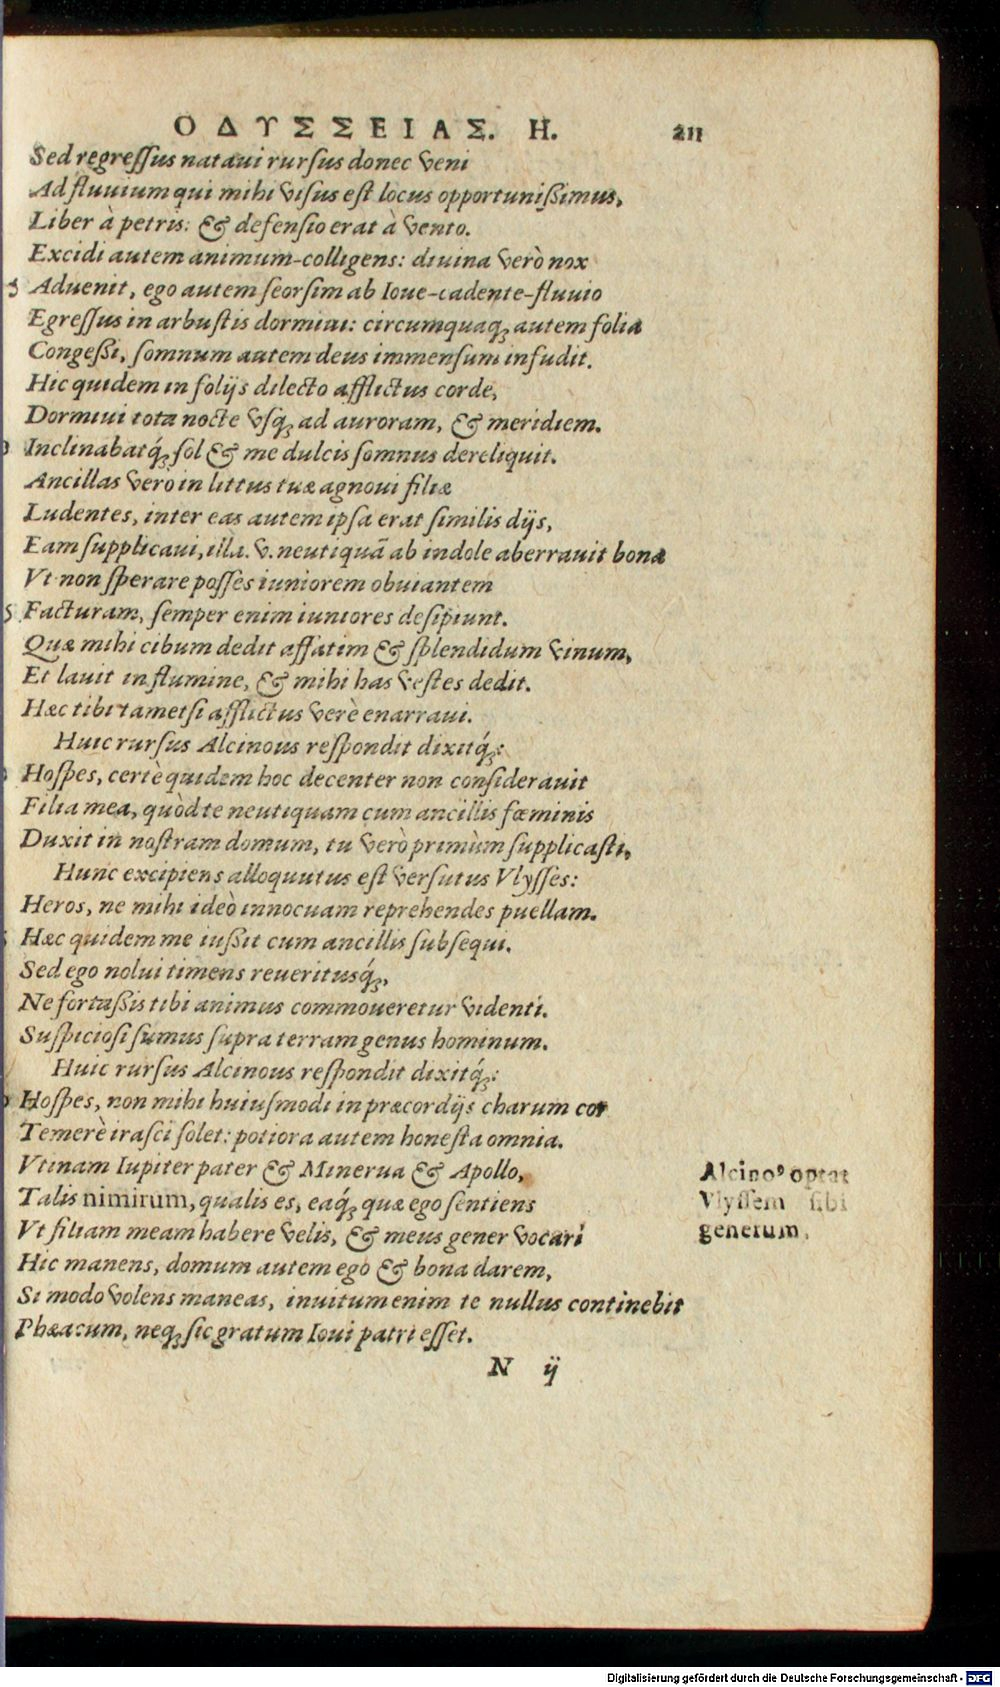 ΟΔΥΣΣΕΙΑΣ. Η. 211
Sed regressus nataui rursus donec veni
Ad fluuium qui mihi visus est locus opportunißimus,
Liber à petris: & defensio erat à vento.
Excidi autem animum-colligens: diuina verò nox
5 Aduenit, ego autem seorsim ab Ioue-cadente-fluuio
Egressus in arbustis dormiui: circumquaq; autem folia
Congeßi, somnum autem deus immensum infudit.
Hic quidem in folijs dilecto afflictus corde,
Dormiui tota nocte vsq; ad auroram, & meridiem.
Inclinabatq́; sol & me dulcis somnus dereliquit.
Ancillas verò in littus tuæ agnoui filiæ
Ludentes, inter eas autem ipsa erat similis dijs,
Eam supplicaui, illa. v. neutiquã ab indole aberrauit bona
Vt non sperare posses iuniorem obuiantem
5 Facturam, semper enim iuniores desipiunt.
Quæ mihi cibum dedit affatim & splendidum vinum,
Et lauit in flumine, & mihi has vestes dedit.
Hæc tibi tametsi afflictus verè enarraui.
Huic rursus Alcinous respondit dixitq́;:
Hospes, certè quidem hoc decenter non considerauit
Filia mea, quòd te neutiquam cum ancillis fœminis
Duxit in nostram domum, tu verò primùm supplicasti,
Hunc excipiens alloquutus est versutus Vlysses:
Heros, ne mihi ideò innocuam reprehendes puellam.
Hæc quidem me iußit cum ancillis subsequi.
Sed ego nolui timens reueritusq́;,
Ne fortaßis tibi animus commoueretur videnti.
Suspiciosi sumus supra terram genus hominum.
Huic rursus Alcinous respondit dixitq́;:
Hospes, non mihi huiusmodi in præcordijs charum cor
Temerè irasci solet: potiora autem honesta omnia.
Vtinam Iupiter pater & Minerua & Apollo,
Talis nimirum, qualis es, eaq́; quæ ego sentiens
Vt filiam meam habere velis, & meus gener vocari
Hic manens, domum autem ego & bona darem,
Si modo volens maneas, inuitum enim te nullus continebit
Phæacum, neq; sic gratum Ioui patri esset.
Alcinoꝰ optat
Vlyssem sibi
generum.
N ij
Digitalisierung gefördert durch die Deutsche Forschungsgemeinschaft - DFG